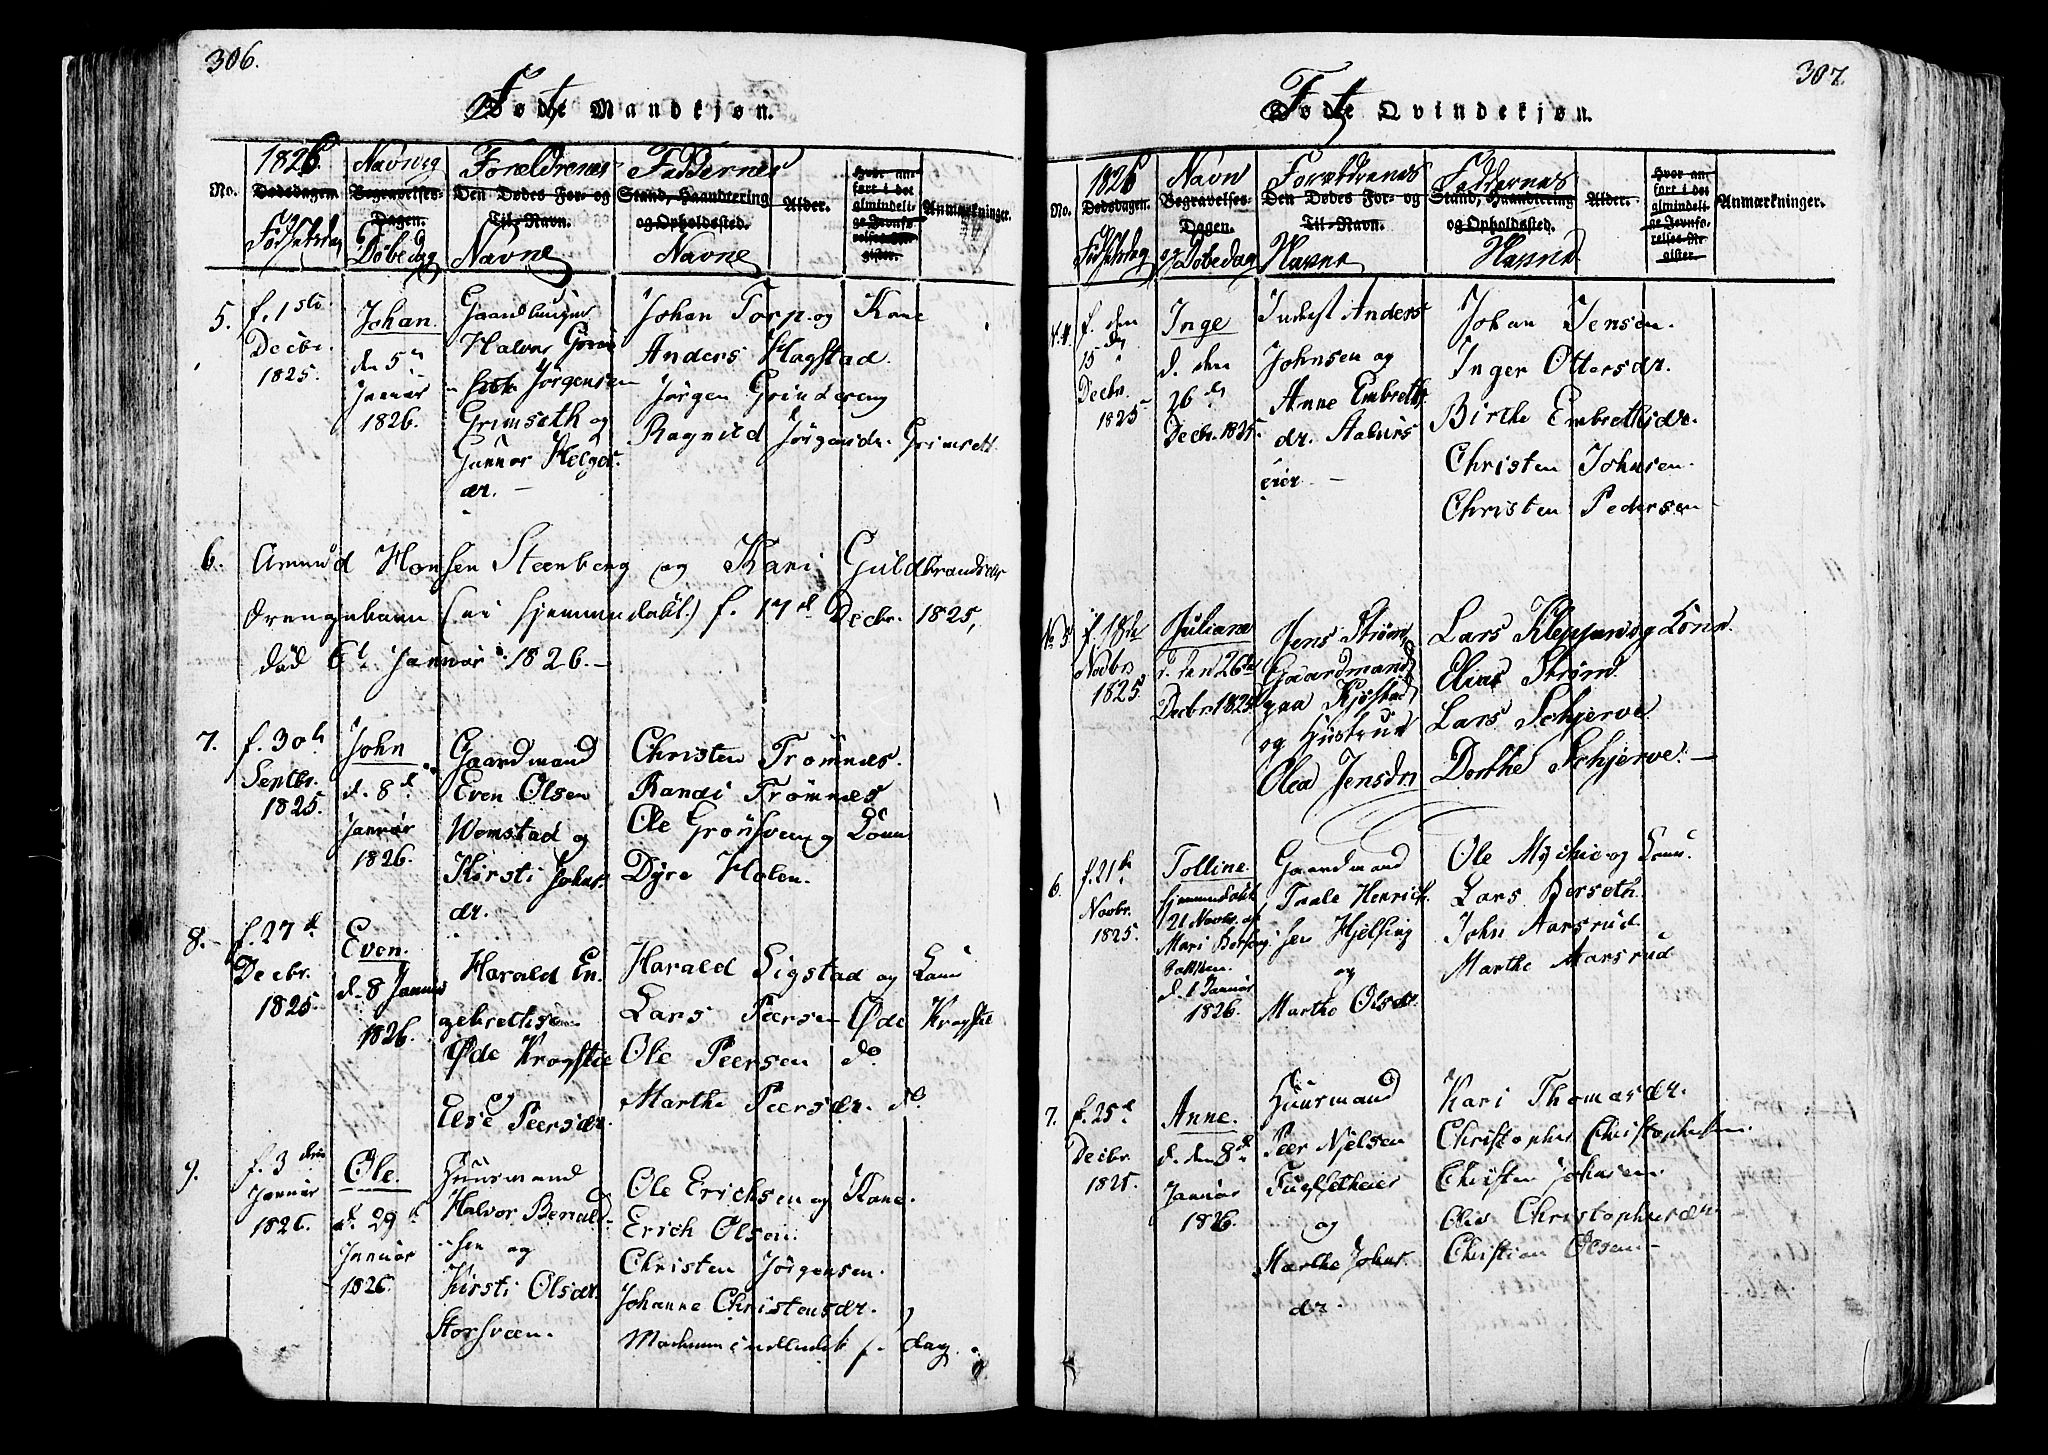 306.
Fødte Mandkjøn.
No.
1826
Dødsdagen.
Fødselsdag
Navn og
Begravelses-
Dagen.
Døbedag
Forældrenes
Den Dødes For- og
Til-Navn.
Navne
Faddernes
Stand, Haandtering
og Opholdssted.
Navne
Alder.
Hvor an-
ført i det
almindeli-
ge Jevnfø-
relses-Re-
gister.
Anmærkninger.
5.
f. 1ste
Decbr.
1825.
Johan.
den 5te
Januar
1826.
Halvor
Jørgensen
Grimseth og
Gunnor Helges-
dr.
Johan Torp og Kone
Anders Hagstad
Jørgen Grindereng
Ragnild Jørgensdr. Grimsett
6.
Amund Hansen Steenberg og Kari Guldbrandsdr
Drengebarn (ei hjemmedøbt) f. 17d Decbr. 1825,
død 6t Januar 1826.
7.
f. 30te
Septbr.
1825.
John
d. 8d
Januar
1826.
Gaardmand
Even Olsen
Wemstad og
Kirsti Johns-
dr.
Christen Trømnes.
Randi Trømnes
Ole Grønsveen og Kone
Dyre Holen.
8.
f. 27d
Decbr.
1825.
Even.
d. 8 Januar
1826.
Harald En-
gebrettsen
Øde Krogstie
og
Else Peersdr.
Harald Sigstad og Kone
Lars Peersen Øde Krogstie
Ole Peersen do
Marthe Peersdr. do
9.
f. 3die
Januar
1826.
Ole.
d. 29d
Januar
1826.
Huusmand
Halvor Bernt-
sen og
Kirsti Olsdr.
Storsveen.
Ole Erichsen og Kone.
Erich Olsen
Christen Jørgensen.
Johanne Christensdr.
Moderen indledet s. dag.
307.
Fødte Qvindekjøn.
No.
1826
Dødsdagen.
Fødselsdag
Navn
Begravelses-
Dagen.
og Døbedag
Forældrenes
Den Dødes For- og
Til-Navn.
Navne
Faddernes
Stand, Haandtering
og Opholdssted.
Navne
Alder.
Hvor an-
ført i det
almindeli-
ge Jevnfø-
relses-Re-
gister.
Anmærkninger.
4.
f. den
15de
Decbr.
1825
Inge
d. den
26de
Decbr. 1825.
Inderst Anders
Johnsen og
Anne Embreths-
dr.
eier.
Johan Jensen.
Inger Ottersdr.
Birthe Embrethsdr.
Christen Johnsen.
Christen Pedersen
No 5
f. 18de
Novbr
1825
Juliane
d. den 26de
Decbr. 1825
Jens Strøm
Gaardmand
paa Kjøstad
og Hustrue
Olea Jensdr
Lars Kleppen og Kone.
Elias Strøm
Lars Schjerve
Dorthe Schjerve.
6.
f. 21de
Novbr.
1825.
Tolline.
hjemmedøbt
21 Novbr. af
Mari
d. 1 Januar
1826.
Gaardmand
Taale Henrik-
sen Hjelsing
og
Marthe Olsdr.
Ole Myhre og Kone.
Lars Berseth
John Aarsrud
Marthe Aarsrud
7.
f. 25d
Decbr.
1825.
Anne.
d. den 8d
Januar
1826.
Huusmand
Peer Nielsen
og
Marthe Johns-
dr.
Kari Thomasdr.
Christopher Christophersen.
Christen Johnsen.
Olea Christophersdr.
Christian Olsen